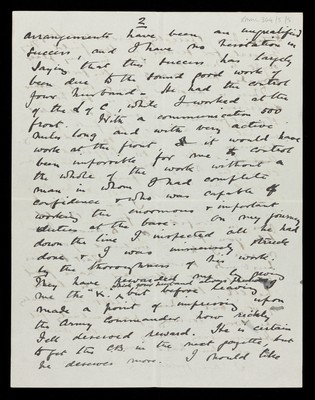 2
arrangements have been an unqualified
success, and I have no hesitation in
saying that this success has largely
been due to the sound good work of
your husband. He had the control
of the L of C, while I worked at the
front. With a communication 500
miles long and with very active
work at the front it would have
been impossible for me to control
the whole of the work without a
man in whom I had complete
confidence & who was capable of
working the enormous & important
duties at the base. On my journey
down the line I inspected all he had
done & I was immensely struck
by the thoroughness of his work.
They have rewarded me by giving
me the K. but before leaving
made a point of impressing upon
the Army Commander how richly
I felt deserved reward. He is certain
to get the CB in the next gazette, but
he deserves more. I should like